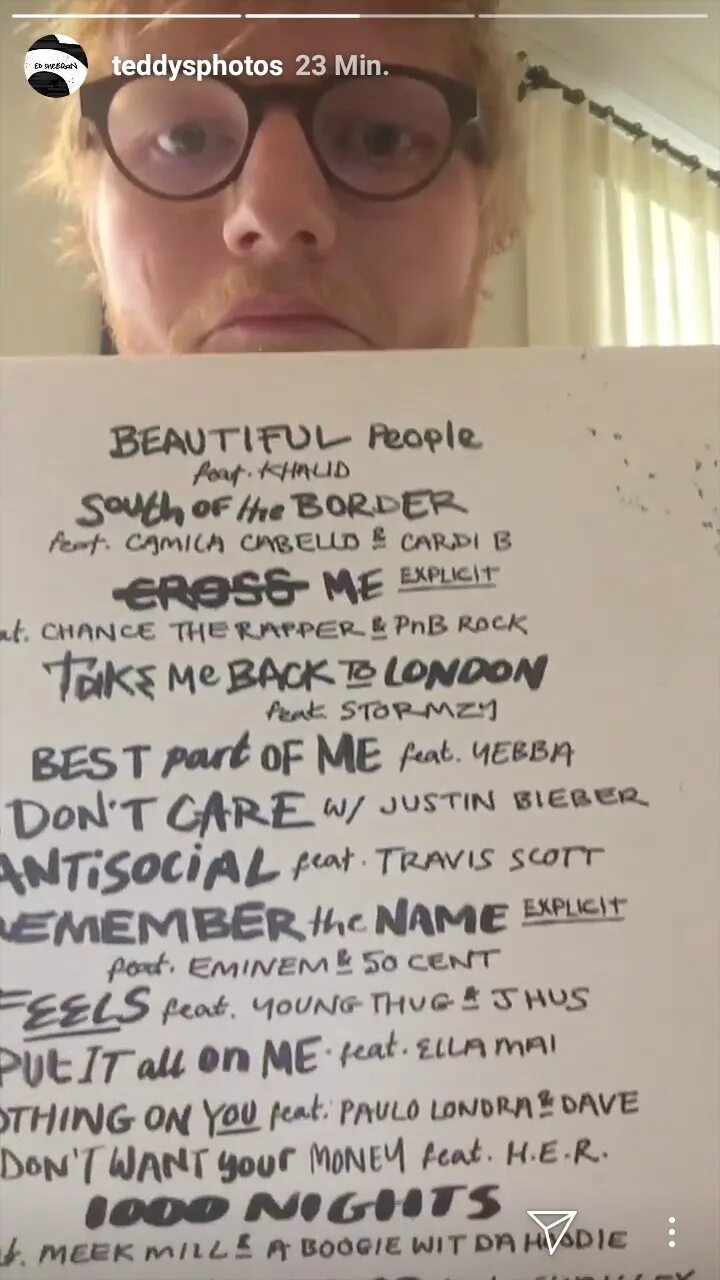 ED SHEERAN
teddysphotos 23 Min.
BEAUTIFUL People
feat. KHALID
South OF the BORDER
feat. CAMILA CABELLO & CARDI B
CROSS ME EXPLICIT
at. CHANCE THE RAPPER & PnB ROCK
Take Me BACK TO LONDON
feat. STORMZY
BEST part OF ME feat. YEBBA
DON'T CARE W/ JUSTIN BIEBER
ANTiSOCiAL feat. TRAVIS SCOTT
REMEMBER the NAME EXPLICIT
feat. EMINEM & 50 CENT
FEELS feat. YOUNG THUG & J HUS
PUt IT all on ME feat. ELLA MAI
OTHING ON YOU feat. PAULO LONDRA & DAVE
DON'T WANT your MONEY feat. H.E.R.
1000 NIGHTS
at. MEEK MILL & A BOOGIE WIT DA HOODIE